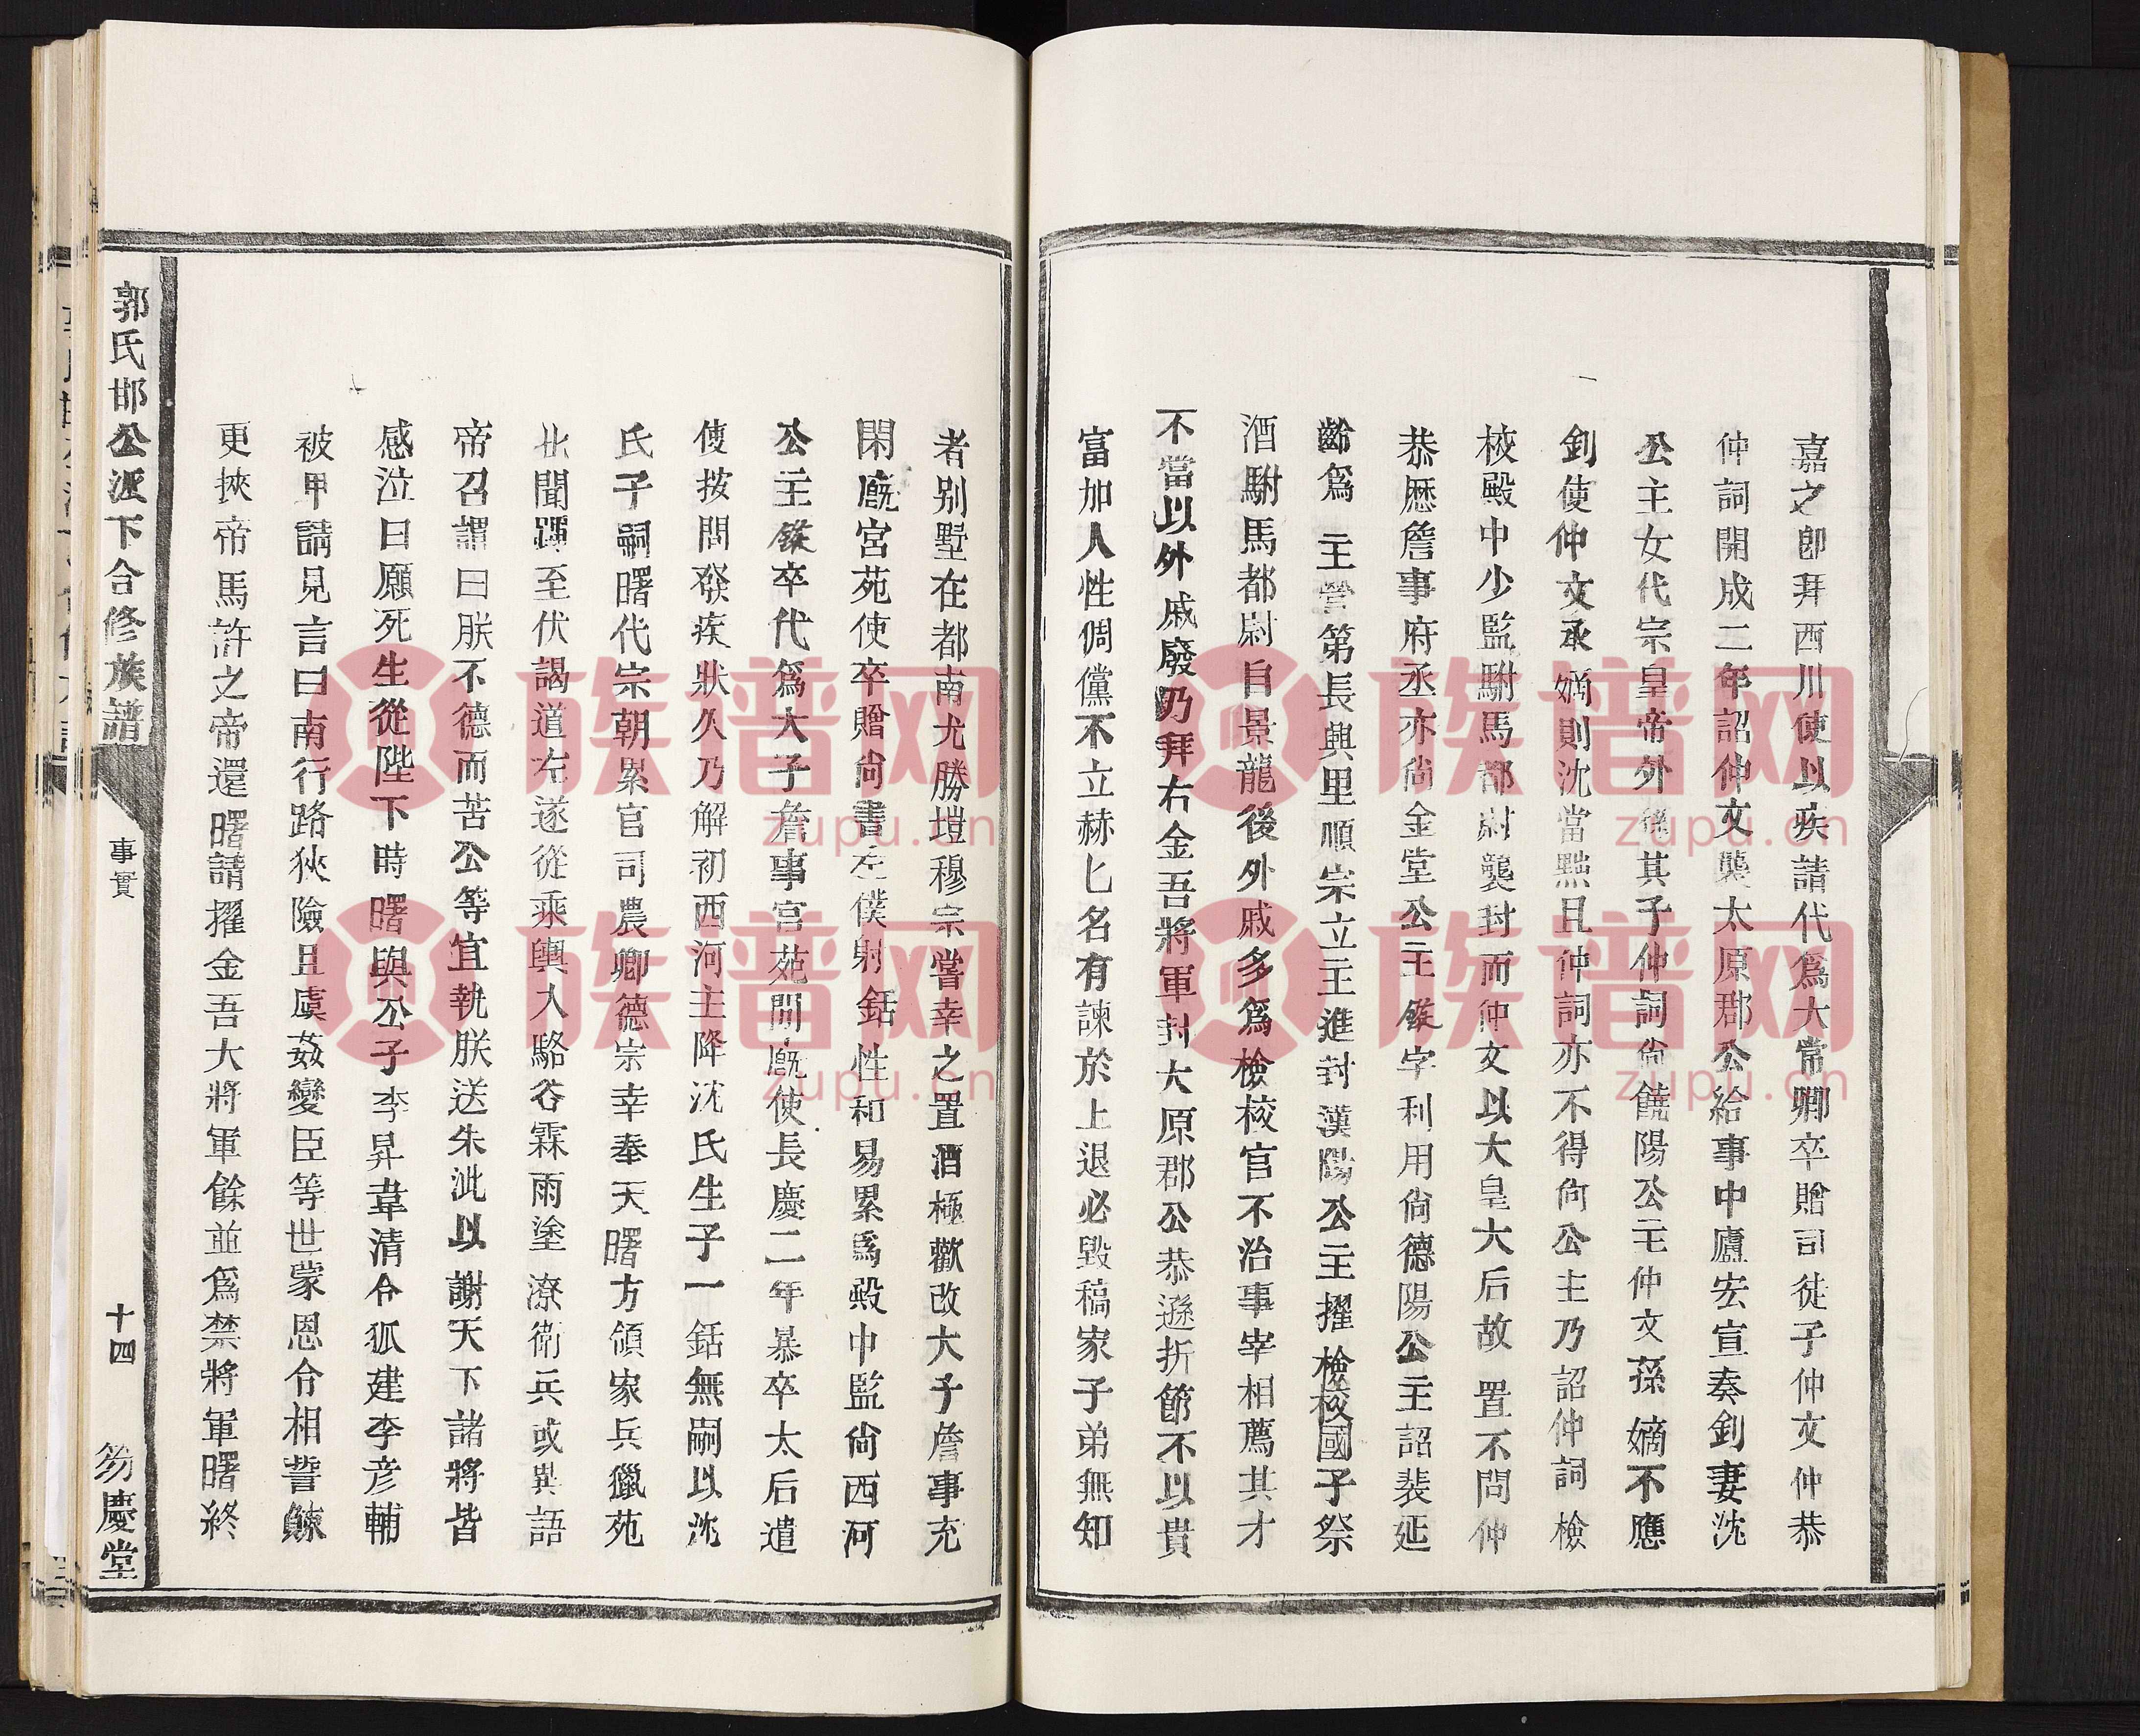 嘉之卽拜西川使以疾請代爲大常卿卒贈司徒子仲文仲恭
仲詞開成二年詔仲文襲太原郡公給事中廬宏宣奏釗妻沈
公主女代宗皇帝外孫其子仲詞尙饒陽公主仲文孫嫡不應
釗使仲文承嫡則沈當黜且仲詞亦不得尙公主乃詔仲詞檢
校殿中少監駙馬都尉襲封而仲文以大皇大后故置不問仲
恭歷詹事府丞亦尙金堂公主鏦字利用尙德陽公主詔裴延
齡爲主營第長興里順宗立主進封漢陽公主擢檢校國子祭
酒駙馬都尉自景龍後外戚多爲檢校官不治事宰相薦其才
不當以外戚廢乃拜右金吾將軍封大原郡公恭遜折節不以貴
富加人性倜儻不立赫匕名有諫於上退必毀稿家子弟無知
者别墅在都南尤勝塏穆宗嘗幸之置酒極歡改大子詹事充
閑廐宮苑使卒贈尙書左僕射銛性和易累爲殿中監尙西河
公主鏦卒代爲大子詹事宮苑閒廐使長慶二年暴卒太后遣
使按問發疾狀久乃解初西河主降沈氏生子一銛無嗣以沈
氏子嗣曙代宗朝累官司農卿德宗幸奉天曙方領家兵獵苑
北聞蹕至伏謁道左遂從乘輿入駱谷霖雨塗潦衛兵或異語
帝召謂曰朕不德而苦公等宜執朕送朱泚以謝天下諸將皆
感泣曰願死生從陛下時曙與公子李昇韋清令狐建李彦輔
被甲請見言曰南行路狹險且虞姦變臣等世蒙恩令相誓餗
更挾帝馬許之帝還曙請擢金吾大將軍餘並爲禁將軍曙終
郭氏邯公派下合修族譜
事實
十四
芴慶堂
族谱网
zupu.cn
族谱网
zupu.cn
族谱网
zupu.cn
族谱网
zupu.cn